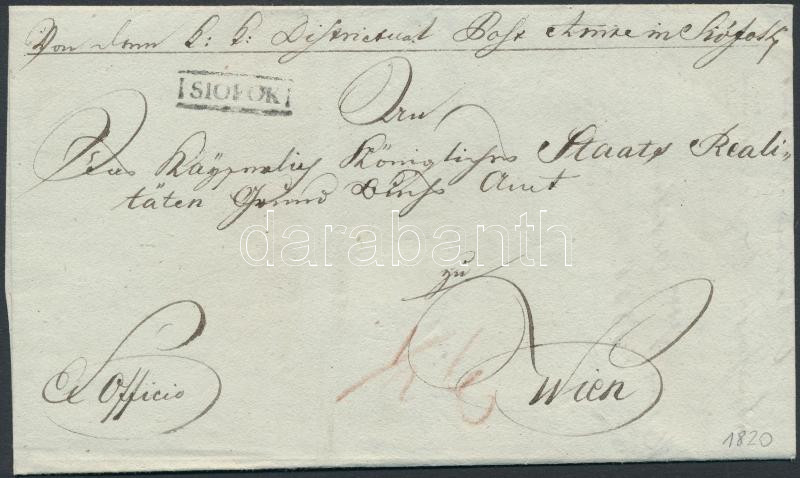 Von dem k: k: Districtual Post Amte in Siófok
SIOFOK
An
Das Kaÿserlich Königliche Staats Reali-
täten Grund Buchs Amt
darabanth
zu
Ex Officio
Wien
1820